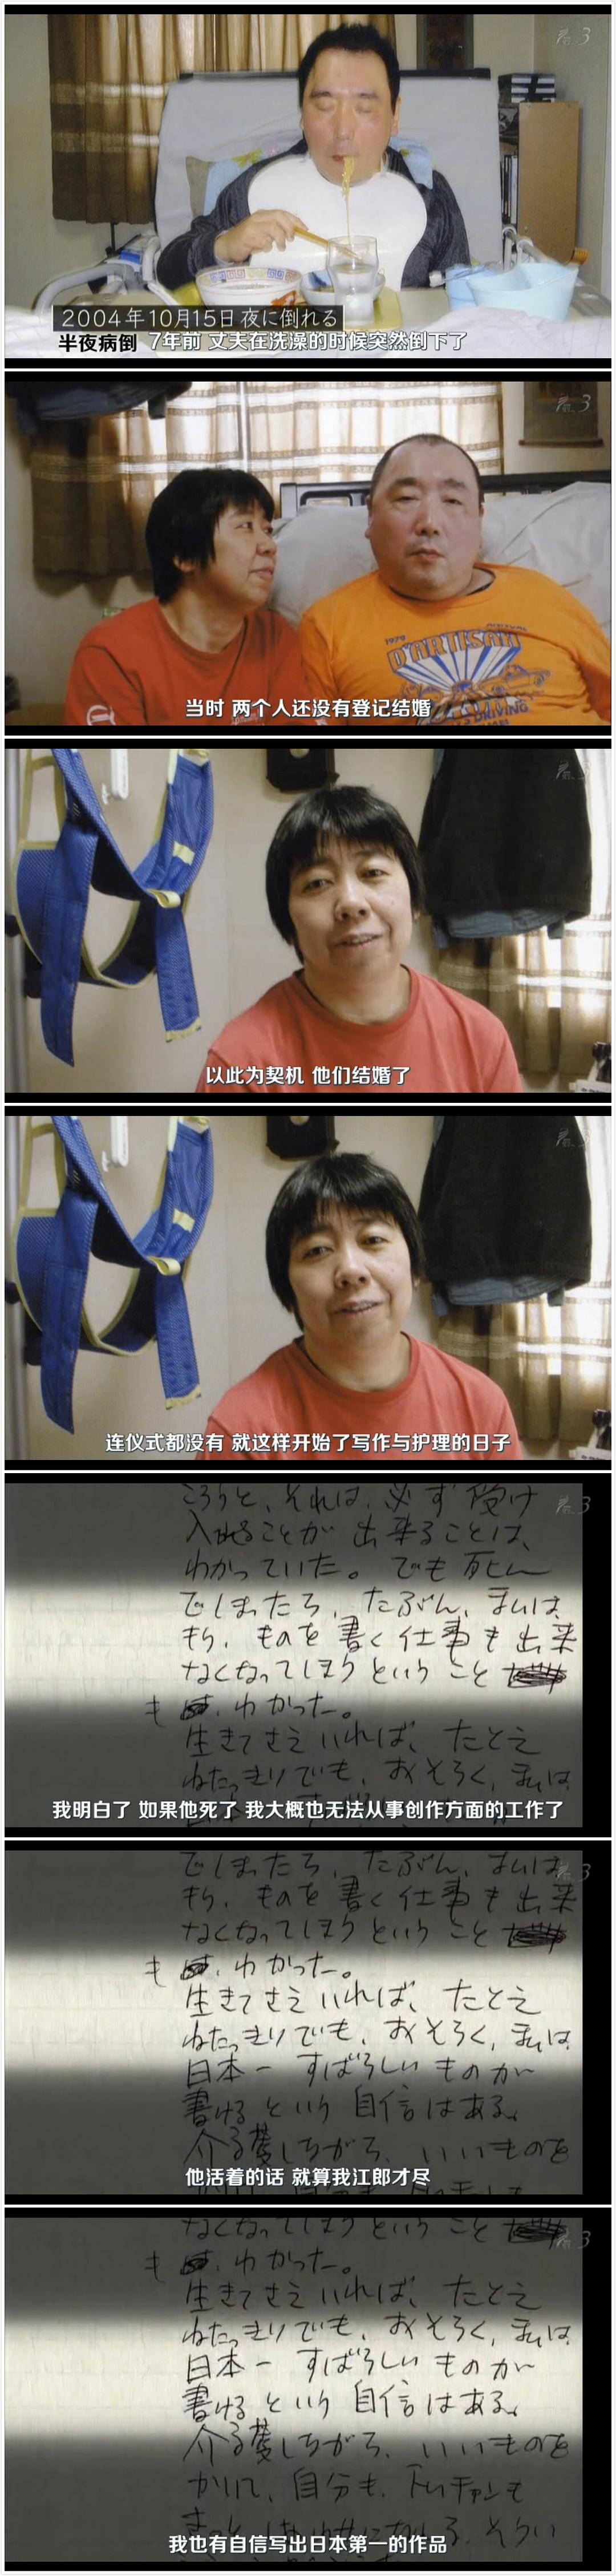 2004年10月15日夜に倒れる
半夜病倒 7年前 丈夫在洗澡的时候突然倒下了
1979
D'ARTISAN
当时 两个人还没有登记结婚
以此为契机 他们结婚了
连仪式都没有 就这样开始了写作与护理的日子
ころうと、それは、必ず受け
入れることが出来ることは、
わかっていた。でも死ん
でしまったら、たぶん、まいは
もう、ものを書く仕事も出来
なくなってしまうということ
も わかった。
生きてさえいれば、たとえ
ねたっきりでも、おそらく、まいは
我明白了 如果他死了 我大概也无法从事创作方面的工作了
でしまったら、たぶん、まいは
もう、ものを書く仕事も出来
なくなってしまうということ
も わかった。
生きてさえいれば、たとえ
ねたっきりでも、おそらく、まいは
日本一 すばらしいものが
書けるという自信はある。
介護しながら、いいものを
他活着的话 就算我江郎才尽
なくなってしまうということ
も わかった。
生きてさえいれば、たとえ
ねたっきりでも、おそらく、まいは
日本一 すばらしいものが
書けるという自信はある。
介護しながら、いいものを
かいて、自分も、トムチャンも
我也有自信写出日本第一的作品